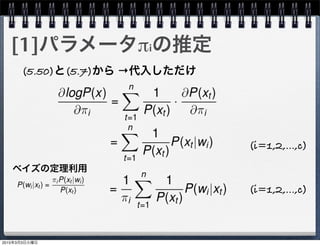 [1]パラメータπiの推定
(5.50)と(5.7)から →代入しただけ
∂logP(x)/∂πi = Σ_{t=1}^{n} 1/P(xt) · ∂P(xt)/∂πi
= Σ_{t=1}^{n} 1/P(xt) P(xt|wi) (i=1,2,...,c)
ベイズの定理利用
P(wi|xt) = πiP(xt|wi)/P(xt)
= 1/πi Σ_{t=1}^{n} 1/P(xt) P(wi|xt) (i=1,2,...,c)